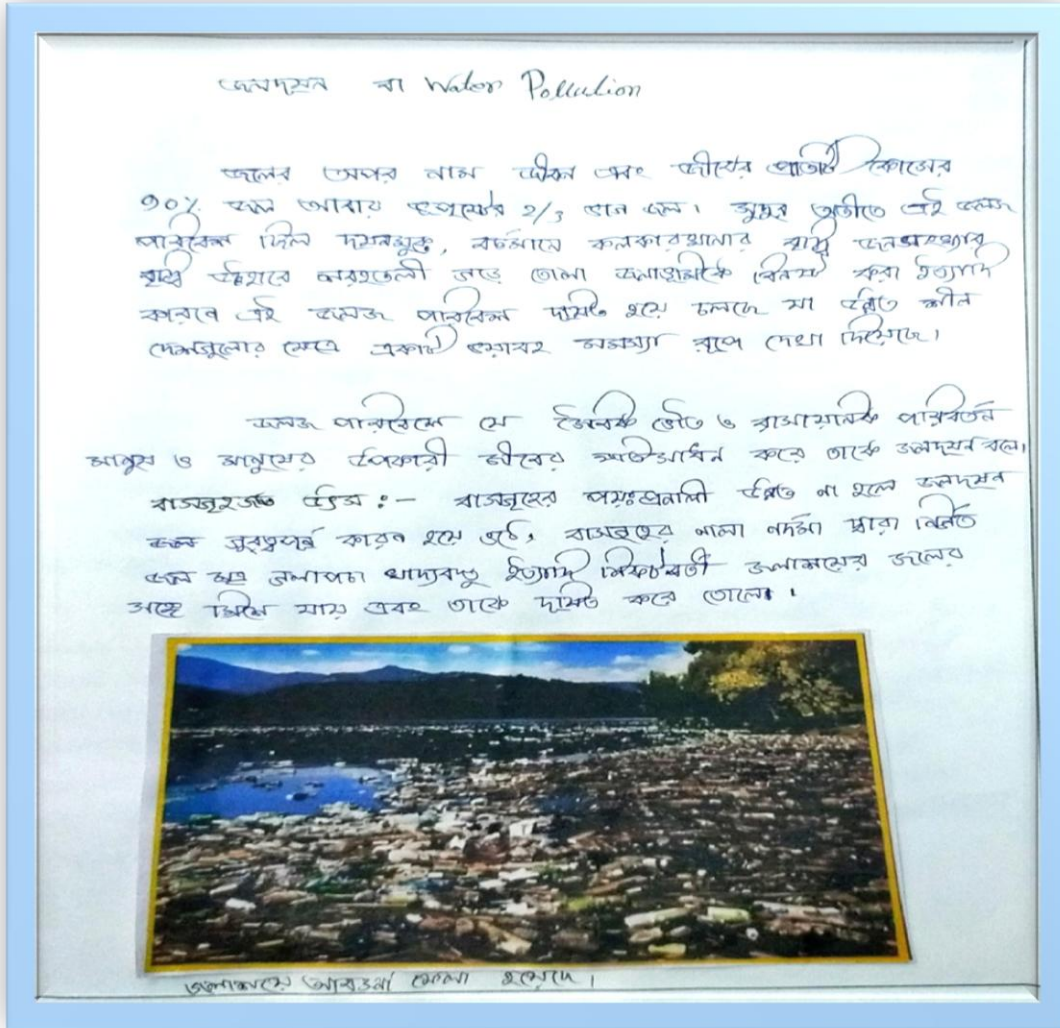 জলদূষণ বা Water Pollution
জলের অপর নাম জীবন এবং জীবের প্রতিটি কোষের
90% জল আবার ভূপৃষ্ঠের 2/3 ভাগ জল। সুদূর অতীতে এই জলজ
পরিবেশ ছিল দূষনমুক্ত, বর্তমানে কলকারখানার বৃদ্ধি জনসংখ্যার
বৃদ্ধি শহরতলী গড়ে তোলা জলাভূমিকে বিনষ্ট করা ইত্যাদি
কারনে এই জলজ পরিবেশ দূষিত হয়ে চলছে যা উন্নত শীল
দেশগুলোর ক্ষেত্রে একটি ভয়াবহ সমস্যা রূপে দেখা দিয়েছে।
জলজ পরিবেশে যে জৈবিক ভৌত ও রাসায়নিক পরিবর্তন
মানুষ ও মানুষের উপকারী জীবের ক্ষতিসাধন করে তাকে জলদূষন বলে।
বাসগৃহজাত উৎস :- বাসগৃহের পয়ঃপ্রনালী উন্নত না হলে জলদূষন
গুরুত্বপূর্ন কারন হয়ে ওঠে, বাসগৃহের নালা নর্দমা দ্বারা নির্গত
জল মূত্র গলাপচা খাদ্যবস্তু ইত্যাদি নিকটবর্তী জলাশয়ের জলের
সঙ্গে মিশে যায় এবং তাকে দূষিত করে তোলে।
জলাশয়ে আবর্জনা ফেলা হয়েছে।